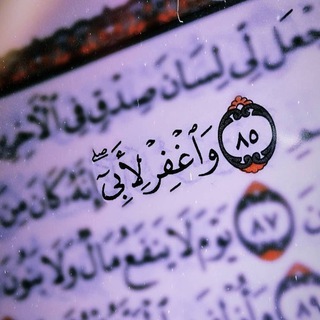 جْعَل لِّى لِسَانَ صِدْقٍ فِى ٱلْـَٔاخِ
٨٥ وَٱغْفِرْ لِأَبِىٓ إِنَّهُۥ كَانَ مِنَ
٨٧ يَوْمَ لَا يَنفَعُ مَالٌ وَلَا بَنُونَ
٨٩